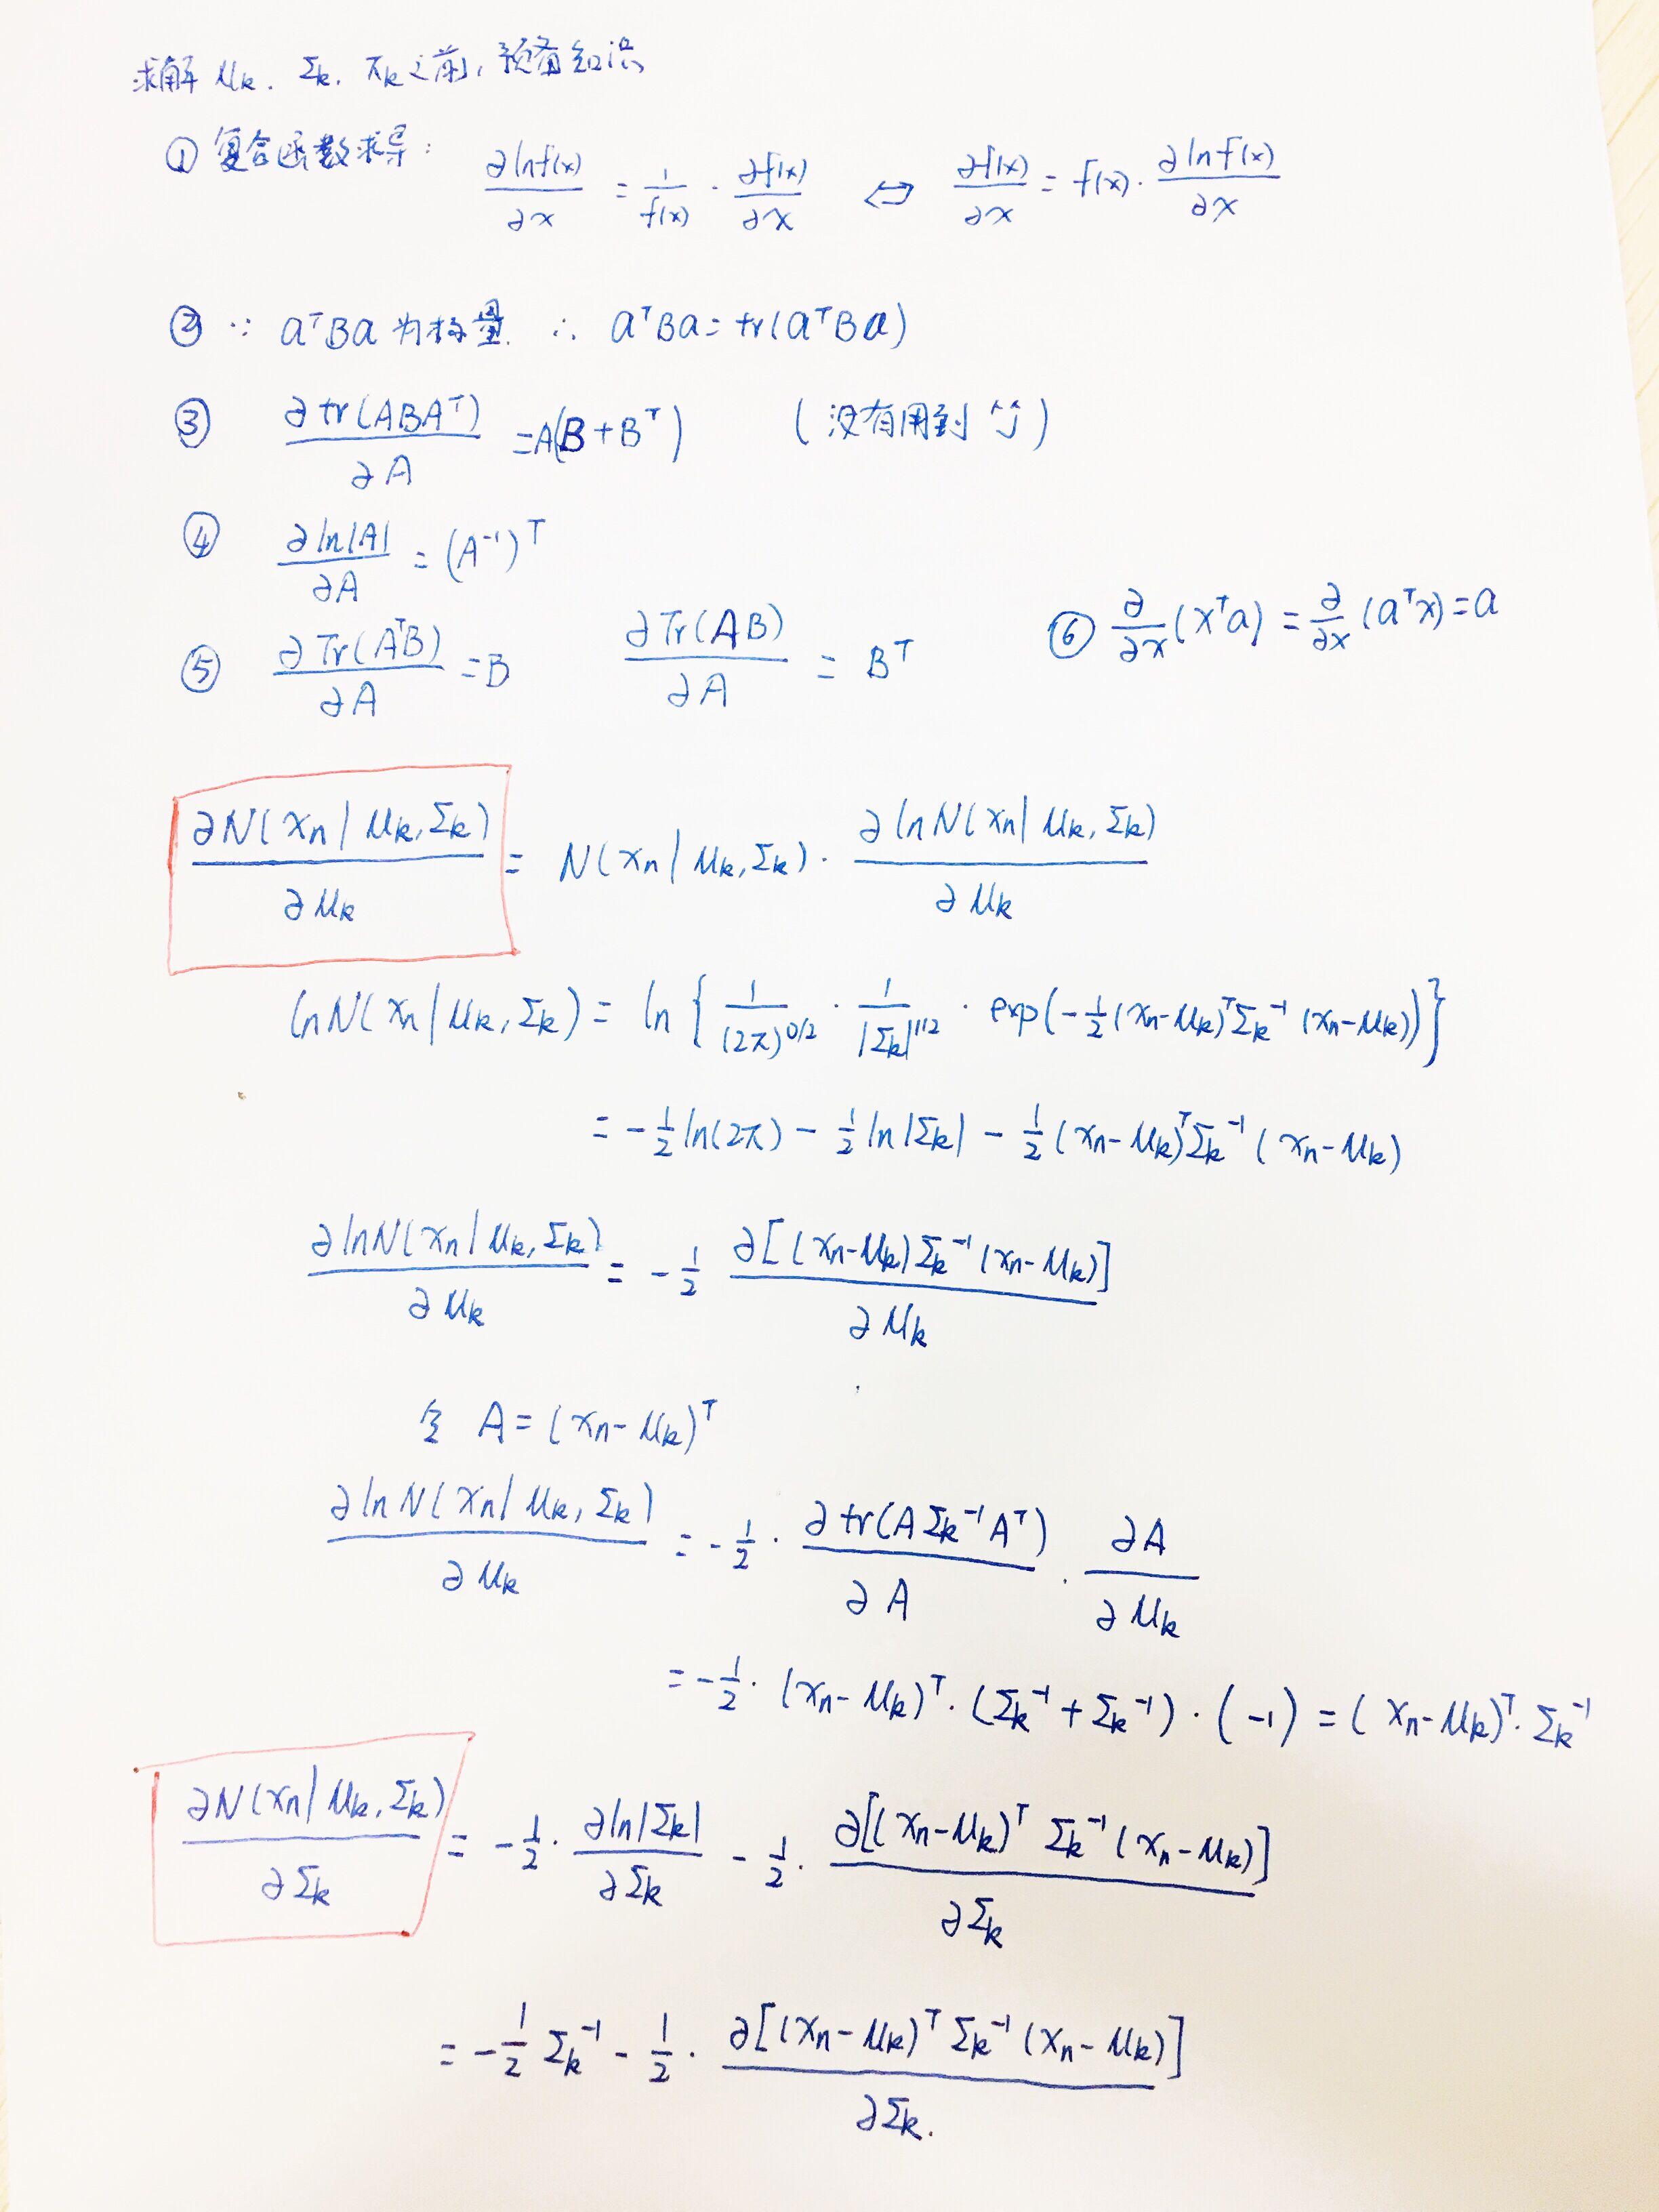 求解 μk. Σk. πk 之前, 预备知识
① 复合函数求导: ∂lnf(x)/∂x = 1/f(x) · ∂f(x)/∂x ⇔ ∂f(x)/∂x = f(x) · ∂lnf(x)/∂x
② ∵ aᵀBa 为标量. ∴ aᵀBa = tr(aᵀBa)
③ ∂tr(ABAᵀ)/∂A = A(B+Bᵀ) (没有用到
④ ∂ln|A|/∂A = (A⁻¹)ᵀ
⑤ ∂Tr(AᵀB)/∂A = B ∂Tr(AB)/∂A = Bᵀ ⑥ ∂/∂x (xᵀa) = ∂/∂x (aᵀx) = a
∂N(xn|μk,Σk)/∂μk = N(xn|μk,Σk) · ∂lnN(xn|μk,Σk)/∂μk
lnN(xn|μk,Σk) = ln { 1/(2π)^{D/2} · 1/|Σk|^{1/2} · exp(-½(xn-μk)ᵀΣk⁻¹(xn-μk)) }
= -½ln(2π) - ½ln|Σk| - ½(xn-μk)ᵀΣk⁻¹(xn-μk)
∂lnN(xn|μk,Σk)/∂μk = -½ ∂[(xn-μk)Σk⁻¹(xn-μk)]/∂μk
令 A = (xn-μk)ᵀ
∂lnN(xn|μk,Σk)/∂μk = -½ · ∂tr(AΣk⁻¹Aᵀ)/∂A · ∂A/∂μk
= -½ · (xn-μk)ᵀ · (Σk⁻¹+Σk⁻¹) · (-1) = (xn-μk)ᵀ · Σk⁻¹
∂N(xn|μk,Σk)/∂Σk = -½ · ∂ln|Σk|/∂Σk - ½ · ∂[(xn-μk)ᵀ Σk⁻¹(xn-μk)]/∂Σk
= -½ Σk⁻¹ - ½ · ∂[(xn-μk)ᵀ Σk⁻¹(xn-μk)]/∂Σk.